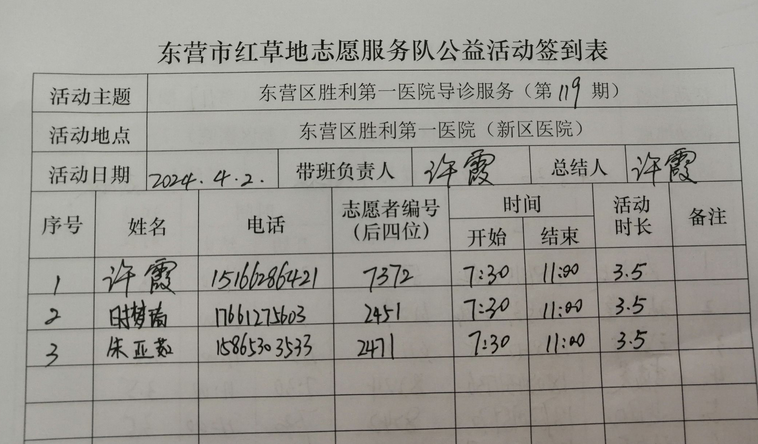 东营市红草地志愿服务队公益活动签到表
活动主题 东营区胜利第一医院导诊服务（第119期）
活动地点 东营区胜利第一医院（新区医院）
活动日期 2024.4.2. 带班负责人 许霞 总结人 许霞
序号 姓名 电话 志愿者编号（后四位） 时间 开始 结束 活动时长 备注
1 许霞 15166286421 7372 7:30 11:00 3.5
2 时梦瑜 17661275603 2451 7:30 11:00 3.5
3 朱亚茹 15865303533 2471 7:30 11:00 3.5